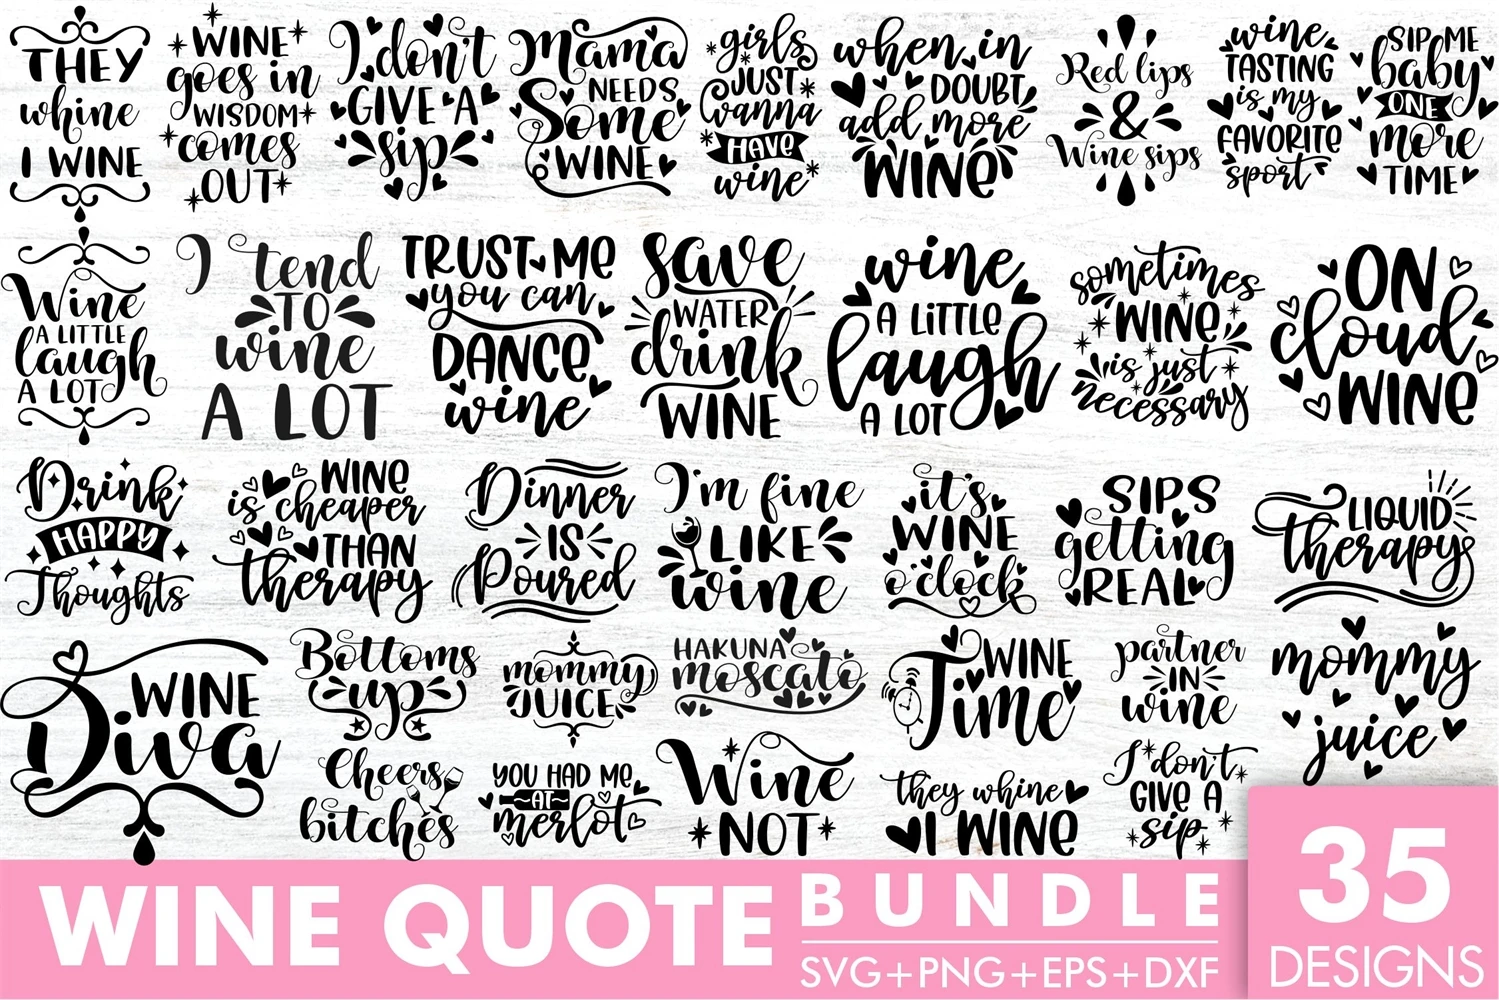 THEY
whine
I WINE
WINE
goes in
WISDOM
comes
OUT
I don't
GIVE A
sip
Mama
NEEDS
Some
WINE
girls
JUST
wanna
HAVE
wine
when in
DOUBT
add more
WINE
Red lips
&
Wine sips
wine
TASTING
is my
FAVORITE
sport
SIP ME
baby
ONE
more
TIME
Wine
A LITTLE
laugh
A LOT
I tend
TO
wine
A LOT
TRUST ME
you can
DANCE
wine
save
WATER
drink
WINE
wine
A LITTLE
laugh
A LOT
sometimes
WINE
is just
necessary
ON
cloud
WINE
Drink
HAPPY
Thoughts
WINE
is cheaper
THAN
therapy
Dinner
IS
Poured
I'm fine
LIKE
wine
it's
WINE
o'clock
SIPS
getting
REAL
LIQUID
therapy
WINE
Diva
Bottoms
up
mommy
JUICE
HAKUNA
moscato
WINE
Time
partner
IN
wine
mommy
juice
Cheers
bitches
YOU HAD ME
AT
merlot
Wine
NOT
they whine
I WINE
I don't
GIVE A
sip
WINE QUOTE
BUNDLE
SVG+PNG+EPS+DXF
35
DESIGNS